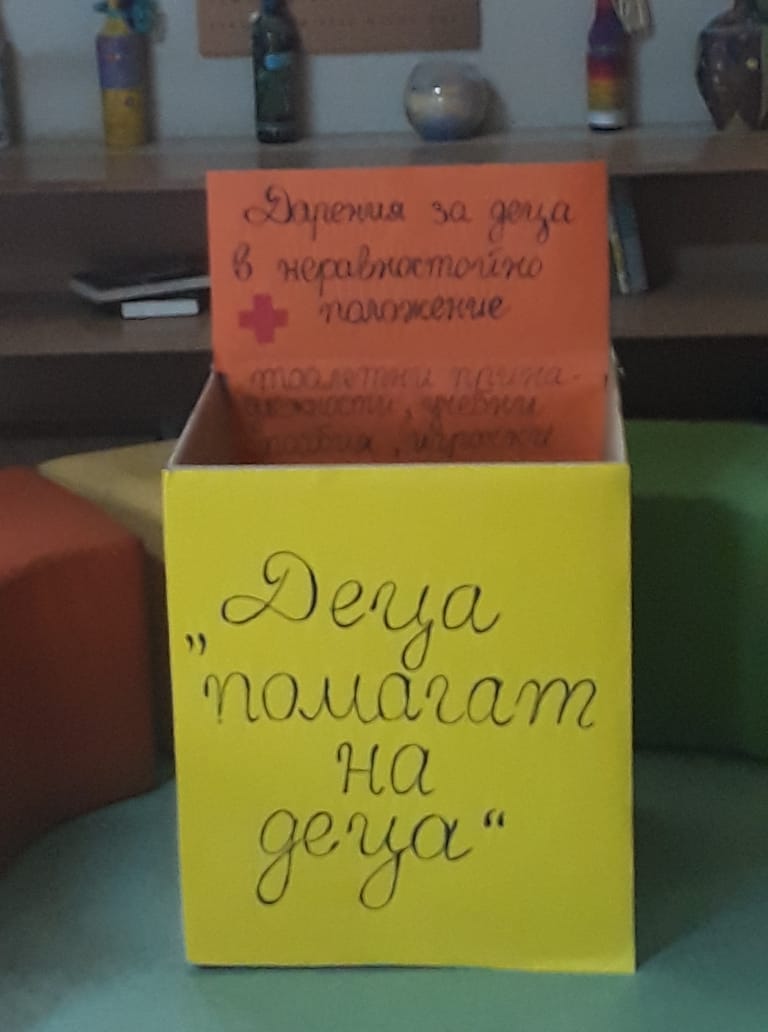 Дарения за деца
в неравностойно
положение
тоалетни прина-
длежности, учебни
пособия, играчки
Деца
"помагат
на
деца"